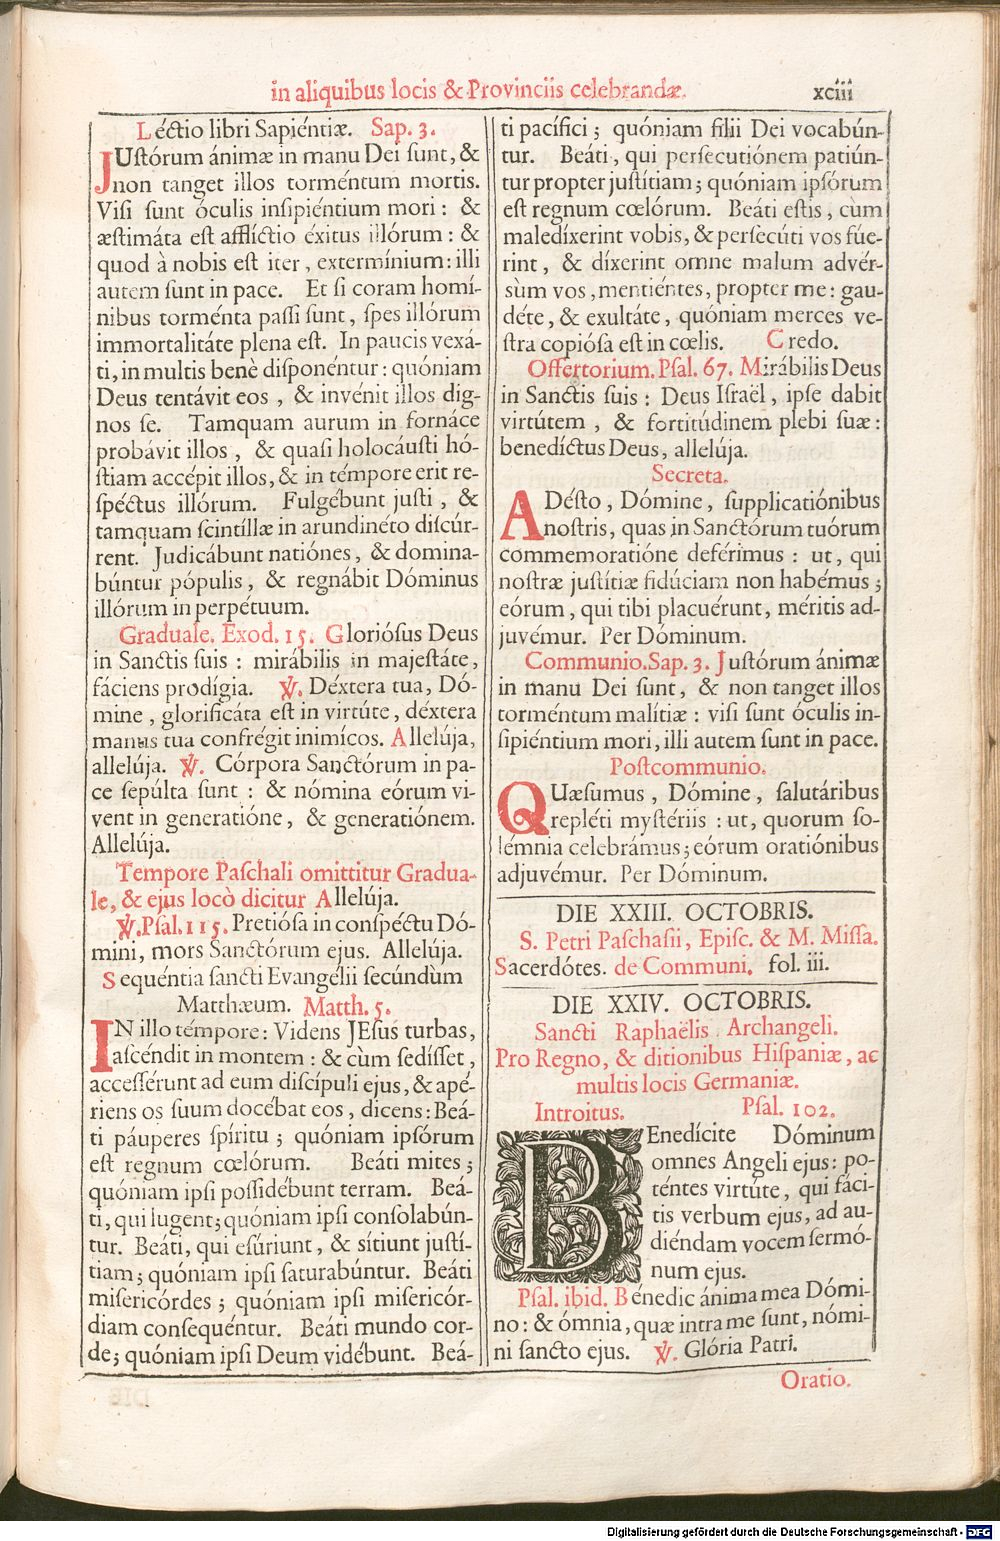 in aliquibus locis & Provinciis celebrandæ. xciii
Léctio libri Sapiéntiæ. Sap. 3.
JUstórum ánimæ in manu Dei sunt, &
non tanget illos torméntum mortis.
Visi sunt óculis insipiéntium mori : &
æstimáta est afflíctio éxitus illórum : &
quod à nobis est iter, extermínium: illi
autem sunt in pace. Et si coram homí-
nibus torménta passi sunt, spes illórum
immortalitáte plena est. In paucis vexá-
ti, in multis benè disponéntur : quóniam
Deus tentávit eos , & invénit illos dig-
nos se. Tamquam aurum in fornáce
probávit illos , & quasi holocáusti hó-
stiam accépit illos, & in témpore erit re-
spéctus illórum. Fulgébunt justi , &
tamquam scintíllæ in arundinéto discúr-
rent. Judicábunt natiónes, & domina-
búntur pópulis, & regnábit Dóminus
illórum in perpétuum.
Graduale. Exod. 15. Gloriósus Deus
in Sanctis suis : mirábilis in majestáte,
fáciens prodígia. ℣. Déxtera tua, Dó-
mine , glorificáta est in virtúte, déxtera
manus tua confrégit inimícos. Allelúja,
allelúja. ℣. Córpora Sanctórum in pa-
ce sepúlta sunt : & nómina eórum vi-
vent in generatióne, & generatiónem.
Allelúja.
Tempore Paschali omittitur Gradua-
le, & ejus locò dicitur Allelúja.
℣. Psal. 115. Pretiósa in conspéctu Dó-
mini, mors Sanctórum ejus. Allelúja.
Sequéntia sancti Evangélii secúndùm
Matthæum. Matth. 5.
IN illo témpore: Videns JEsus turbas,
ascéndit in montem : & cùm sedísset,
accessérunt ad eum discípuli ejus, & apé-
riens os suum docébat eos, dicens: Beá-
ti páuperes spíritu ; quóniam ipsórum
est regnum cœlórum. Beáti mites ;
quóniam ipsi possidébunt terram. Beá-
ti, qui lugent; quóniam ipsi consolabún-
tur. Beáti, qui esúriunt, & sítiunt justí-
tiam; quóniam ipsi saturabúntur. Beáti
misericórdes ; quóniam ipsi misericór-
diam consequéntur. Beáti mundo cor-
de; quóniam ipsi Deum vidébunt. Beá-
ti pacífici ; quóniam filii Dei vocabún-
tur. Beáti, qui persecutiónem patiún-
tur propter justítiam; quóniam ipsórum
est regnum cœlórum. Beáti estis, cùm
maledíxerint vobis, & persecúti vos fúe-
rint, & díxerint omne malum advér-
sùm vos, mentiéntes, propter me: gau-
déte, & exultáte, quóniam merces ve-
stra copiósa est in cœlis. Credo.
Offertorium. Psal. 67. Mirábilis Deus
in Sanctis suis : Deus Israël, ipse dabit
virtútem , & fortitúdinem plebi suæ :
benedíctus Deus, allelúja.
Secreta.
ADésto , Dómine, supplicatiónibus
nostris, quas in Sanctórum tuórum
commemoratióne deférimus : ut, qui
nostræ justítiæ fidúciam non habémus ;
eórum , qui tibi placuérunt, méritis ad-
juvémur. Per Dóminum.
Communio. Sap. 3. Justórum ánimæ
in manu Dei sunt, & non tanget illos
torméntum malítiæ : visi sunt óculis in-
sipiéntium mori, illi autem sunt in pace.
Postcommunio.
QUæsumus , Dómine , salutáribus
repléti mystériis : ut, quorum so-
lémnia celebrámus; eórum oratiónibus
adjuvémur. Per Dóminum.
DIE XXIII. OCTOBRIS.
S. Petri Paschasii, Episc. & M. Missa.
Sacerdótes. de Communi. fol. iii.
DIE XXIV. OCTOBRIS.
Sancti Raphaëlis Archangeli.
Pro Regno, & ditionibus Hispaniæ, ac
multis locis Germaniæ.
Introitus. Psal. 102.
BEnedícite Dóminum
omnes Angeli ejus : po-
téntes virtúte, qui fáci-
tis verbum ejus, ad au-
diéndam vocem sermó-
num ejus.
Psal. ibid. Bénedic ánima mea Dómi-
no : & ómnia, quæ intra me sunt, nómi-
ni sancto ejus. ℣. Glória Patri.
Oratio.
Digitalisierung gefördert durch die Deutsche Forschungsgemeinschaft - DFG